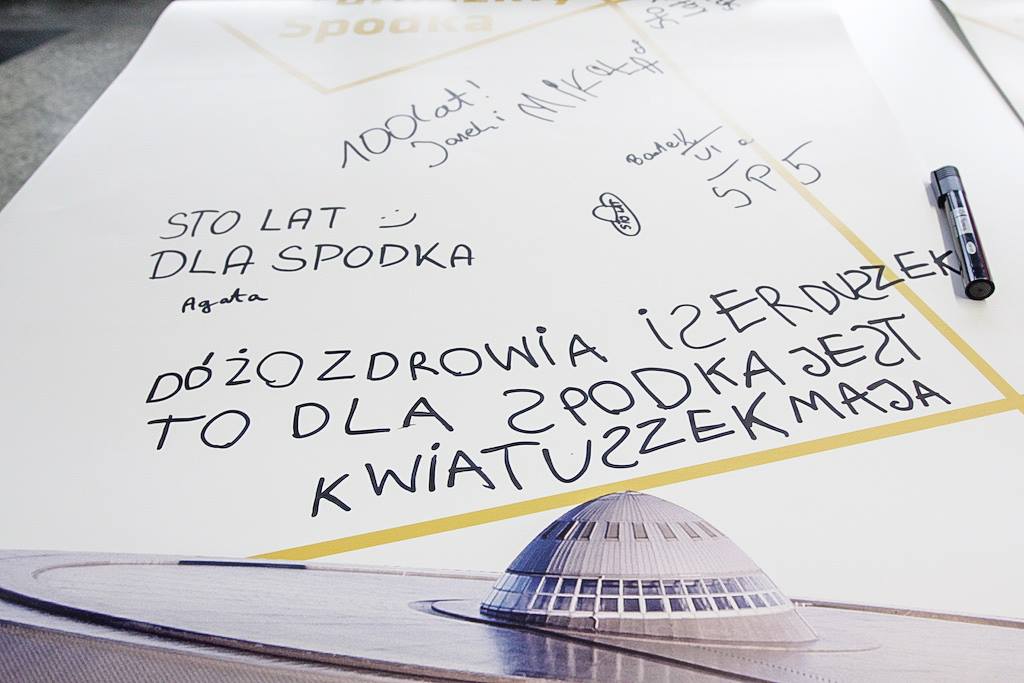 Spodka
100 lat!
Janek i MIKOŁAJ
SP5
STO LAT :)
DLA SPODKA
Agata
DÓŻO ZDROWIA I SERDUSZEK
TO DLA SPODKA JEST
KWIATUSZEK MAJA